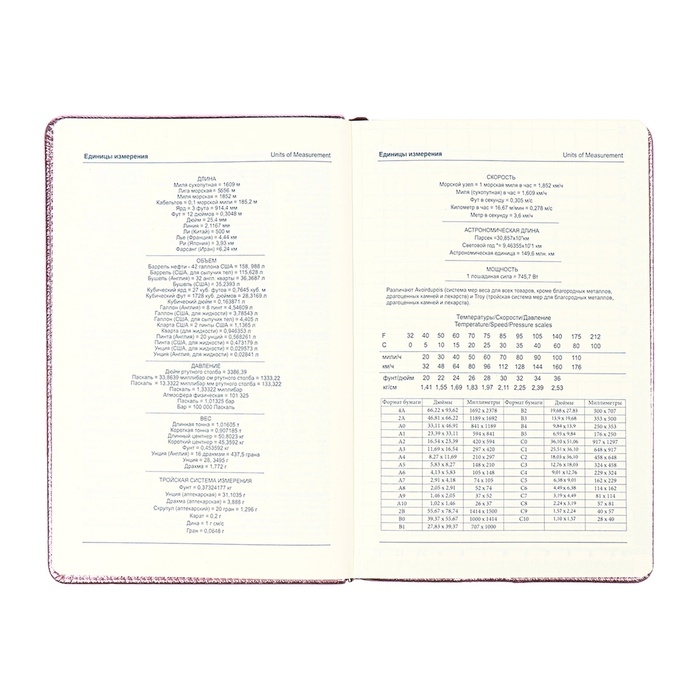 Единицы измерения Units of Measurement
ДЛИНА
Миля сухопутная = 1609 м
Лига морская = 5556 м
Миля морская = 1852 м
Кабельтов = 0.1 морской мили = 185,2 м
Ярд = 3 фута = 914,4 мм
Фут = 12 дюймов = 0,3048 м
Дюйм = 25,4 мм
Линия = 2,1167 мм
Ли (Китай) = 500 м
Лье (Франция) = 4,44 км
Ри (Япония) = 3,93 км
Фарсанг (Иран) =6,24 км
ОБЪЕМ
Баррель нефти - 42 галлона США = 158, 988 л
Баррель (США, для сыпучих тел) = 115,628 л
Бушель (Англия) = 32 англ. кварты = 36,3687 л
Бушель (США) = 35,2393 л
Кубический ярд = 27 куб. футов = 0,7645 куб. м
Кубический фут = 1728 куб. дюймов = 28,3169 л
Кубический дюйм = 0,163871 л
Галлон (Англия) = 8 пинт = 4,54609 л
Галлон (США, для жидкости) = 3,78543 л
Галлон (США, для сыпучих тел) = 4,405 л
Кварта США = 2 пинты США = 1,1365 л
Кварта (для жидкости) = 0,946353 л
Пинта (Англия) = 20 унций = 0,568261 л
Пинта (США, для жидкости) = 0,473179 л
Унция (США, для жидкости) = 0,029573 л
Унция (Англия, для жидкости) = 0,02841 л
ДАВЛЕНИЕ
Дюйм ртутного столба = 3386,39
Паскаль = 33,8639 миллибар см ртутного столба = 1333,22
Паскаль = 13,3322 миллибар мм ртутного столба = 133,322
Паскаль = 1,33322 миллибар
Атмосфера физическая = 101 325
Паскаль = 1,01325 бар
Бар = 100 000 Паскаль
ВЕС
Длинная тонна = 1,01605 т
Короткая тонна = 0,907185 т
Длинный центнер = 50,8023 кг
Короткий центнер = 45,3592 кг
Фунт = 0,453592 кг
Унция (Англия) = 16 драхмам = 437,5 грана
Унция = 28, 3495 г
Драхма = 1,772 г
ТРОЙСКАЯ СИСТЕМА ИЗМЕРЕНИЯ
Фунт = 0,37324177 кг
Унция (аптекарская) = 31,1035 г
Драхма (аптекарская) = 3,888 г
Скрупул (аптекарский) = 20 гран = 1,296 г
Карат = 0,2 г
Дина = 1 г см/с
Гран = 0,0648 г
Единицы измерения Units of Measurement
СКОРОСТЬ
Морской узел = 1 морская миля в час = 1,852 км/ч
Миля (сухопутная) в час = 1,609 км/ч
Фут в секунду = 0,305 м/с
Километр в час = 16,67 м/мин = 0,278 м/с
Метр в секунду = 3,6 км/ч
АСТРОНОМИЧЕСКАЯ ДЛИНА
Астрономическая единица = 149,6 млн. км
МОЩНОСТЬ
1 лошадиная сила = 745,7 Вт
Различают Avoirdupois (система мер веса для всех товаров, кроме благородных металлов,
драгоценных камней и лекарств) и Troy (тройская система мер для благородных металлов,
драгоценных камней и лекарств).
Температуры/Скорости/Давление
Temperature/Speed/Pressure scales
F 32 40 50 60 70 75 85 95 105 140 175 212
C 0 5 10 15 20 25 30 35 40 60 80 100
мили/ч 20 30 40 50 60 70 80 90 100 110
км/ч 32 48 64 80 96 112 128 144 160 176
фунт/дюйм 20 22 24 26 28 30 32 34 36
кг/см 1,41 1,55 1,69 1,83 1,97 2,11 2,25 2,39 2,53
Формат бумаги Дюймы Миллиметры Формат бумаги Дюймы Миллиметры
4A 66,22 x 93,62 1692 x 2378 B2 19,68 x 27,83 500 x 707
2A 46,81 x 66,22 1189 x 1692 B3 13,9 x 19,68 353 x 500
A0 33,11 x 46,91 841 x 1189 B4 9,84 x 13,9 250 x 353
A1 23,39 x 33,11 594 x 841 B5 6,93 x 9,84 176 x 250
A2 16,54 x 23,39 420 x 594 C0 36,10 x 51,06 917 x 1297
A3 11,69 x 16,54 297 x 420 C1 25,51 x 36,10 648 x 917
A4 8,27 x 11,69 210 x 297 C2 18,03 x 36,10 458 x 648
A5 5,83 x 8,27 148 x 210 C3 12,76 x 18,03 324 x 458
A6 4,13 x 5,83 105 x 148 C4 9,03 x 12,76 229 x 324
A7 2,91 x 4,18 74 x 105 C5 6,38 x 9,03 162 x 229
A8 2,05 x 2,91 52 x 74 C6 4,49 x 6,38 114 x 162
A9 1,46 x 2,05 37 x 52 C7 3,19 x 4,49 81 x 114
A10 1,02 x 1,46 26 x 37 C8 2,24 x 3,19 57 x 81
2B 55,67 x 78,74 1414 x 1500 C9 1,57 x 2,24 40 x 57
B0 39,37 x 55,67 1000 x 1414 C10 1,10 x 1,57 28 x 40
B1 27,83 x 39,37 707 x 1000